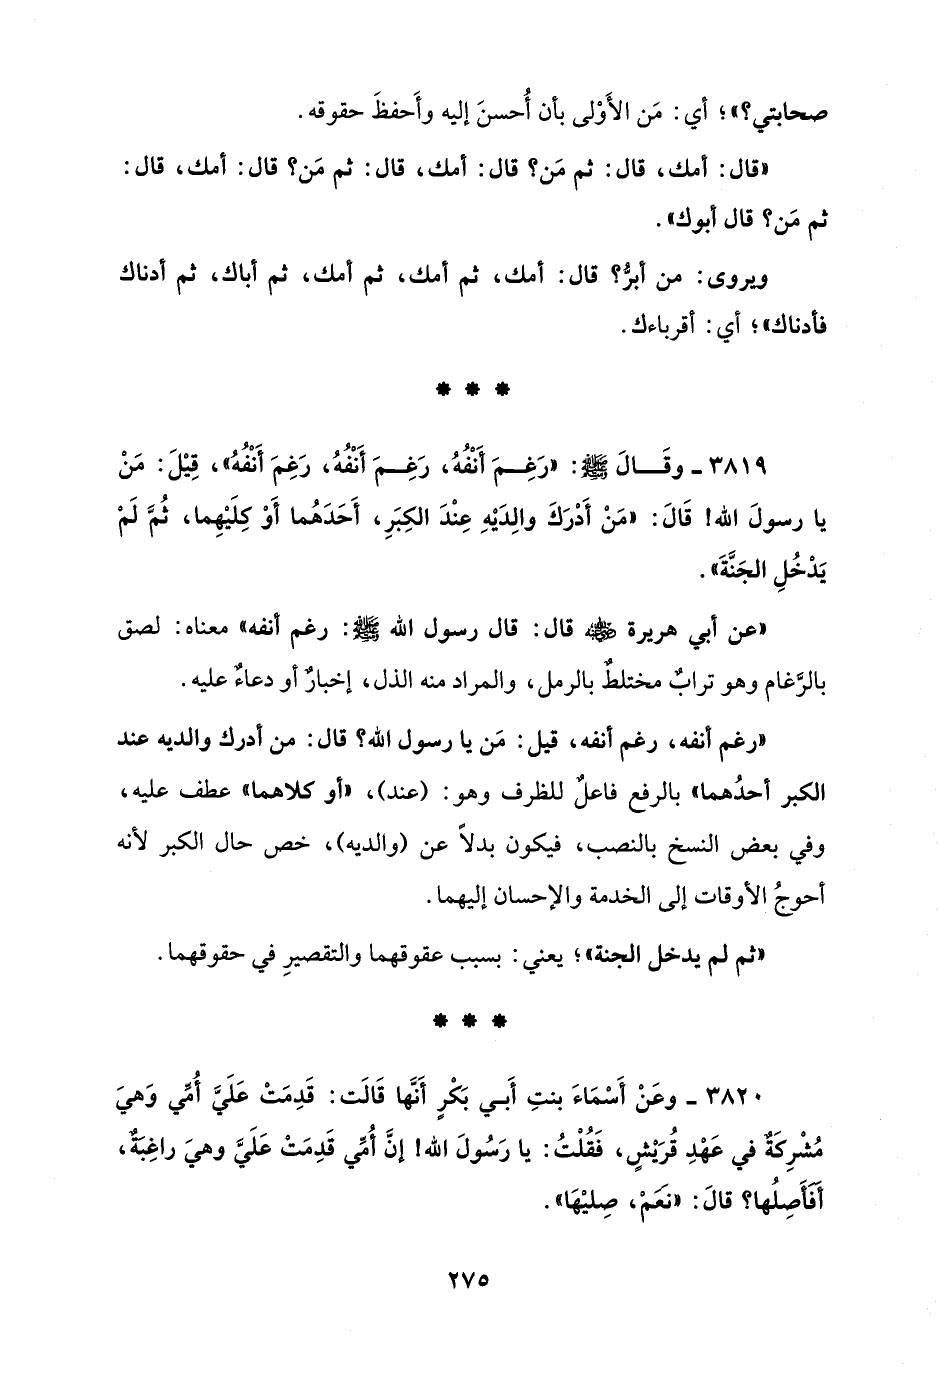 صحابتي؟»؛ أي: مَن الأَوْلى بأن أُحسنَ إليه وأَحفظَ حقوقه.
«قال: أمك، قال: ثم مَن؟ قال: أمك، قال: ثم مَن؟ قال: أمك، قال:
ثم مَن؟ قال أبوك».
ويروى: من أبرُّ؟ قال: أمك، ثم أمك، ثم أمك، ثم أباك، ثم أدناك
فأدناك»؛ أي: أقرباءك.
* * *
٣٨١٩ ـ وقَـــالَ ﷺ: «رَغِــمَ أَنْفُهُ، رَغِــمَ أَنْفُهُ، رَغِمَ أَنْفُهُ»، قِيْلَ: مَنْ
يا رسولَ الله! قَالَ: «مَنْ أَدْرَكَ والِدَيْهِ عِنْدَ الكِبَرِ، أَحَدَهُما أوْ كِلَيْهِما، ثُمَّ لَمْ
يَدْخُلِ الجَنَّةَ».
«عن أبي هريرة ﵁ قال: قال رسول الله ﷺ: رغم أنفه» معناه: لصق
بالرَّغام وهو ترابٌ مختلطٌ بالرمل، والمراد منه الذل، إخبارٌ أو دعاءٌ عليه.
«رغم أنفه، رغم أنفه، قيل: مَن يا رسول الله؟ قال: من أدرك والديه عند
الكبر أحدُهما» بالرفع فاعلٌ للظرف وهو: (عند)، «أو كلاهما» عطف عليه،
وفي بعض النسخ بالنصب، فيكون بدلاً عن (والديه)، خص حال الكبر لأنه
أحوجُ الأوقات إلى الخدمة والإحسان إليهما.
«ثم لم يدخل الجنة»؛ يعني: بسبب عقوقهما والتقصيرِ في حقوقهما.
* * *
٣٨٢٠ ـ وعَنْ أَسْمَاءَ بنتِ أَبـي بَكْرٍ أَنَّها قَالَت: قَدِمَتْ عَلَيَّ أُمِّي وَهيَ
مُشْرِكَةٌ في عَهْدِ قُرَيْشٍ، فَقُلْتُ: يا رَسُولَ الله! إنَّ أُمِّي قَدِمَتْ عَلَيَّ وهيَ راغِبَةٌ،
أَفَأَصِلُها؟ قالَ: «نَعَمْ، صِليْهَا».
٢٧٥